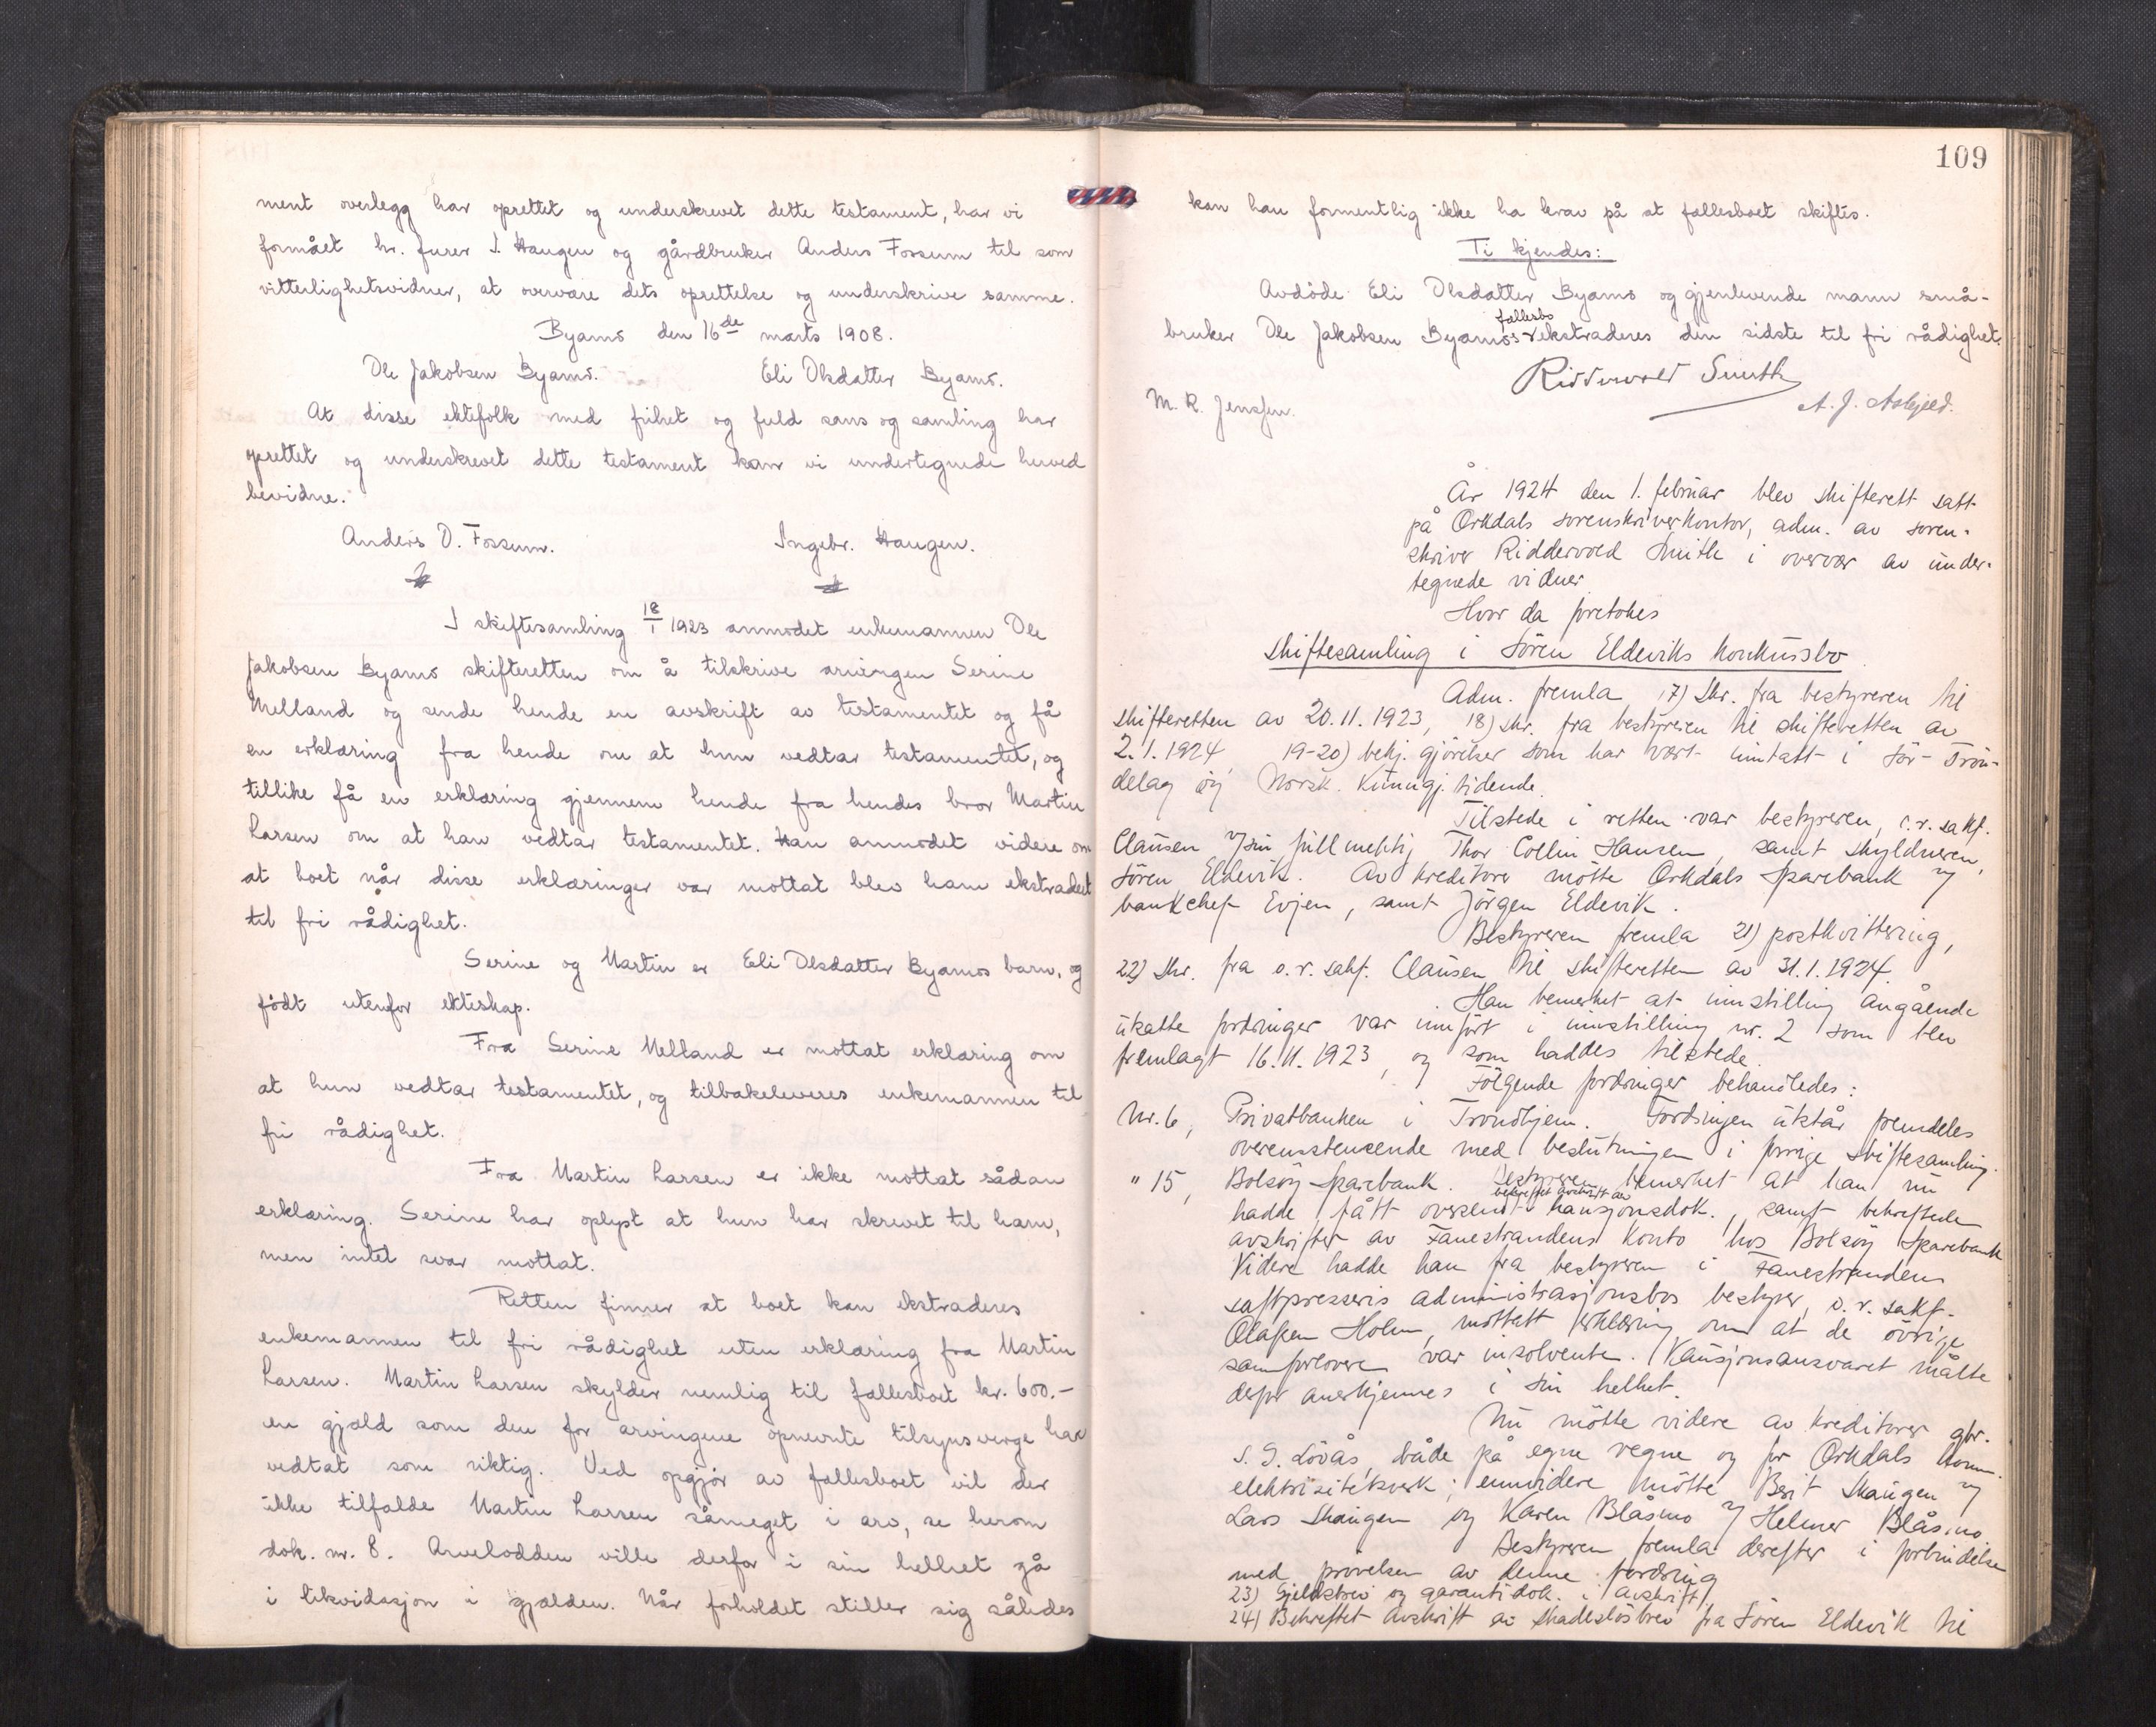 ment overlegg har oprettet og underskrevet dette testament, har vi
formået hr. furer I. Haugen og gårdbruker Anders Fossum til som
vitterlighetsvidner, at overvære dets oprettelse og underskrive samme.
Byams den 16de marts 1908.
Ole Jakobsen Byams. Eli Olsdatter Byams.
At disse ektefolk med frihet og fuld sans og samling har
oprettet og underskrevet dette testament kan vi undertegnede herved
bevidne.
Anders O. Fossum. Ingebr. Haugen.
I skiftesamling 18/1 1923 anmodet enkemannen Ole
Jakobsen Byams skifteretten om å tilskrive arvingen Serine
Melland og sende hende en avskrift av testamentet og få
en erklæring fra hende om at hun vedtar testamentet, og
tillike få en erklæring gjennem hende fra hendes bror Martin
Larsen om at han vedtar testamentet. Han anmodet videre om
at boet når disse erklæringer var mottat blev ham ekstradert
til fri rådighet.
Serine og Martin er Eli Olsdatter Byams barn, og
født utenfor ekteskap.
Fra Serine Melland er mottat erklæring om
at hun vedtar testamentet, og tilbakeleveres enkemannen til
fri rådighet.
Fra Martin Larsen er ikke mottat sådan
erklæring. Serine har oplyst at hun har skrevet til ham,
men intet svar mottat.
Retten finner at boet kan ekstraderes
enkemannen til fri rådighet uten erklæring fra Martin
Larsen. Martin Larsen skylder nemlig til fællesboet kr. 600.-
en gjæld som den for arvingene opnevnte tilsynsverge har
vedtat som riktig. Ved opgjør av fællesboet vil der
ikke tilfalde Martin Larsen såmeget i arv, se herom
dok. nr. 8. Arvelodden ville derfor i sin helhet gå
i likvidasjon i gjælden. Når forholdet stiller sig således
109
kan han formentlig ikke ha krav på at fællesboet skiftes.
Ti kjendes:
Avdøde Eli Olsdatter Byams og gjenlevende mann små-
fællesbo
bruker Ole Jakobsen Byams's ekstraderes den sidste til fri rådighet.
Riddervold Smith
M. R. Jenssen. A. J. Asbjeld.
År 1924 den 1. februar blev skifterett satt
på Orkdals sorenskriverkontor, adm. av soren-
skriver Riddervold Smith i overvær av under-
tegnede vidner
Hvor da foretokes
skiftesamling i Søren Eldeviks konkursbo.
Adm. fremla 17) Skr. fra bestyreren til
skifteretten av 20.11.1923, 18) skr. fra bestyreren til skifteretten av
2.1.1924, 19-20) bekj. gjørelser som har vært inntatt i Sør-Trøn-
delag og Norsk. Kunngj. tidende.
Tilstede i retten var bestyreren, o.r. sakf.
Clausen v/ sin fullmektig Thor Collin Hansen, samt skyldneren,
Søren Eldevik. Av kreditorer møtte Orkdals Sparebank v/
bankchef Evjen, samt Jørgen Eldevik.
Bestyreren fremla 21) postkvittering,
22) Skr. fra o.r. sakf. Clausen til skifteretten av 31.1.1924.
Han bemerket at innstilling angående
ukatte fordringer var innført i innstilling nr. 2 som blev
fremlagt 16.11.1923, og som haddes tilstede.
Følgende fordringer behandledes:
Nr. 6, Privatbanken i Trondhjem. Fordringen utstår fremdeles
overensstemmende med beslutningen i forrige skiftesamling.
" 15, Bolsøy Sparebank. Bestyreren bemerket at han nu
bekreftet avskrift av
hadde fått oversendt kausjonsdok., samt bekreftede
avskrifter av Fanestrandens konto hos Bolsøy Sparebank
Videre hadde han fra bestyreren i Fanestrandens
saftpresseris administrasjonsbos bestyrer, o.r. sakf.
Olafsen Holm, mottatt erklæring om at de øvrige
samforlovere var insolvente. Kausjonsansvaret måtte
derfor anerkjennes i sin helhet.
Nu møtte videre av kreditorer gbr.
S. S. Løvås, både på egne vegne og for Orkdals komm.
elektrisitetsverk; ennvidere møtte Berit Skaugen v/
Lars Skaugen og Karen Blåsmo v/ Helmer Blåsmo.
Bestyreren fremla derefter i forbindelse
med prøvelsen av denne fordring
23) Gjeldsbrev og garantidok. i avskrift.
24) Bekreftet avskrift av skadesløsbrev fra Søren Eldevik til